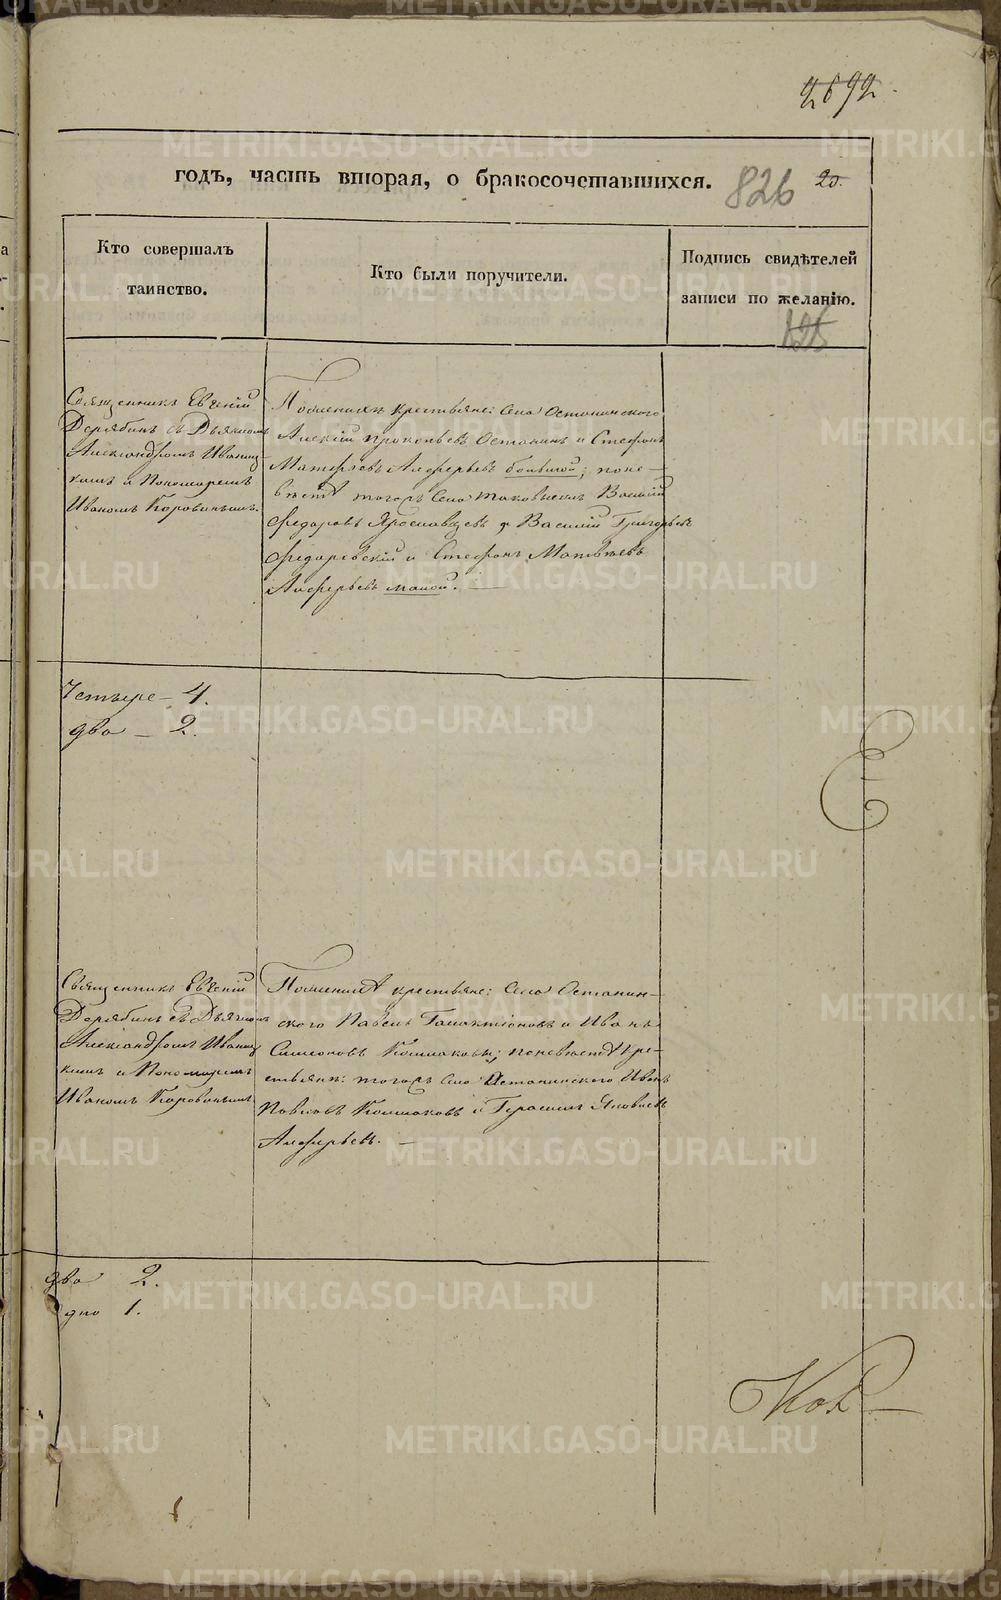 2692.
годъ, часть вторая, о бракосочетавшихся.
826
20.
Кто совершалъ
таинство.
Кто были поручители.
Подпись свидѣтелей
записи по желанію.
Священникъ Евгеній
Дерябинъ съ Дьякономъ
Александромъ Иваниц-
кимъ и Пономаремъ
Иваномъ Коровинымъ.
По женихѣ крестьяне: Села Останинского
Алексій Прокопьевъ Останинъ и Стефанъ
Матфѣевъ Алферьевъ большой; поне-
вѣстѣ тогожъ Села Василій
Федоровъ Ярославцевъ, Василій Григорьевъ
Федоровскій и Стефанъ Матвѣевъ
Алферьевъ малой.
Четыре - 4.
два - 2.
Священникъ Евгеній
Дерябинъ съ Дьякономъ
Александромъ Иваниц-
кимъ и Пономаремъ
Иваномъ Коровинымъ
По женихѣ крестьяне: Села Останин-
ского Павелъ Галактіоновъ и Иванъ
Симеоновъ Колмаковы; поневѣстѣ кре-
стьяне: тогожъ села Останинского Иванъ
Павловъ Колмаковъ и Герасимъ Яковлевъ
Алферьевъ.
два 2.
одно 1.
METRIKI.GASO-URAL.RU